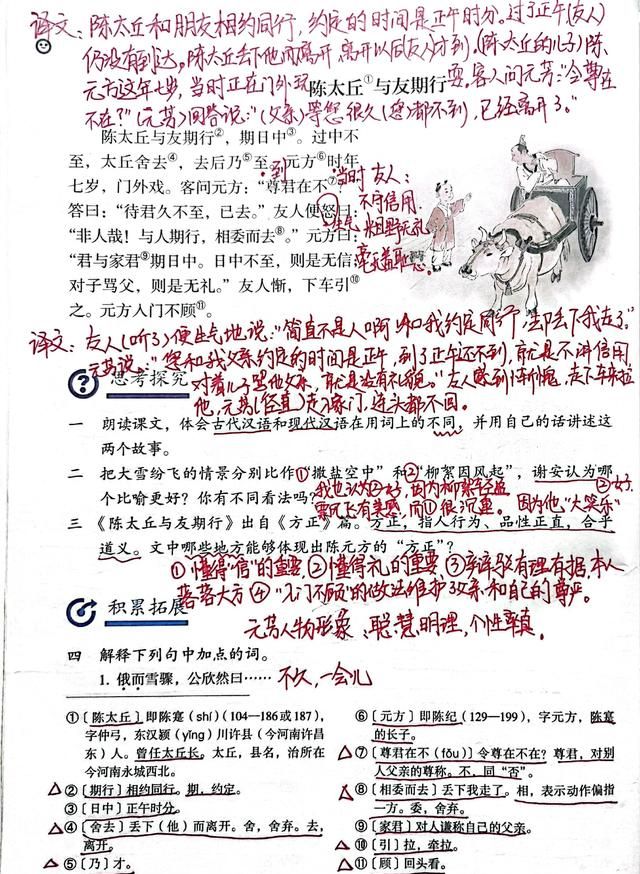 译文：陈太丘和朋友相约同行，约定的时间是正午时分。过了正午(友人)
仍没有到达。陈太丘丢下他而离开，离开以后(友人)才到，(陈太丘的儿子)陈
元方这年七岁，当时正在门外玩耍。客人问元方："令尊在
陈太丘①与友期行
不在？"(元方)回答说："(父亲)等您很久(您)都不到，已经离开了。"
陈太丘与友期行②，期日中③。过中不
至，太丘舍去④，去后乃⑤至。元方⑥时年
到
七岁，门外戏。客问元方："尊君在不⑦？"
当时友人：
答曰："待君久不至，已去。"友人便怒曰：
不守信用
"非人哉！与人期行，相委而去⑧。"元方曰：
生气
粗野无礼
"君与家君⑨期日中。日中不至，则是无信；
毫无羞耻心。
对子骂父，则是无礼。"友人惭，下车引⑩
之。元方入门不顾⑪。
译文：友人(听了)便生气地说："简直不是人啊！和我约定同行，丢下我走了。"
元方说："您和我父亲约定的时间是正午，到了正午还不到，就是不讲信用，
对着儿子骂他父亲，就是没有礼貌。"友人感到惭愧，走下车来拉
他，元方(径直)走入家门，连头都不回。
思考探究
一 朗读课文，体会古代汉语和现代汉语在用词上的不同，并用自己的话讲述这
两个故事。
二 把大雪纷飞的情景分别比作①"撒盐空中"和②"柳絮因风起"，谢安认为哪
个比喻更好？你有不同看法吗？
②好
我也认为②好，因为柳絮轻盈
飘飞有美感，而①很沉重。
因为他"大笑乐"
三 《陈太丘与友期行》出自《方正》篇。方正，指人行为、品性正直，合乎
道义。文中哪些地方能够体现出陈元方的"方正"？
①懂得"信"的重要，②懂得礼的重要 ③辛辣驳有理有据，本人
落落大方 ④"入门不顾"的做法维护了父亲和自己的尊严。
元方人物形象：聪慧明理，个性率真。
积累拓展
四 解释下列句中加点的词。
1. 俄而雪骤，公欣然曰……
不久，一会儿
①〔陈太丘〕即陈寔（shí）（104—186或187），
字仲弓，东汉颍（yǐng）川许县（今河南许昌
东）人。曾任太丘长。太丘，县名，治所在
今河南永城西北。
②〔期行〕相约同行。期，约定。
③〔日中〕正午时分。
④〔舍去〕丢下（他）而离开。舍，舍弃。去，
离开。
⑤〔乃〕才。
⑥〔元方〕即陈纪（129—199），字元方，陈寔
的长子。
⑦〔尊君在不（fǒu）〕令尊在不在？尊君，对别
人父亲的尊称。不，同"否"。
⑧〔相委而去〕丢下我走了。相，表示动作偏指
一方。委，舍弃。
⑨〔家君〕对人谦称自己的父亲。
⑩〔引〕拉，牵拉。
⑪〔顾〕回头看。